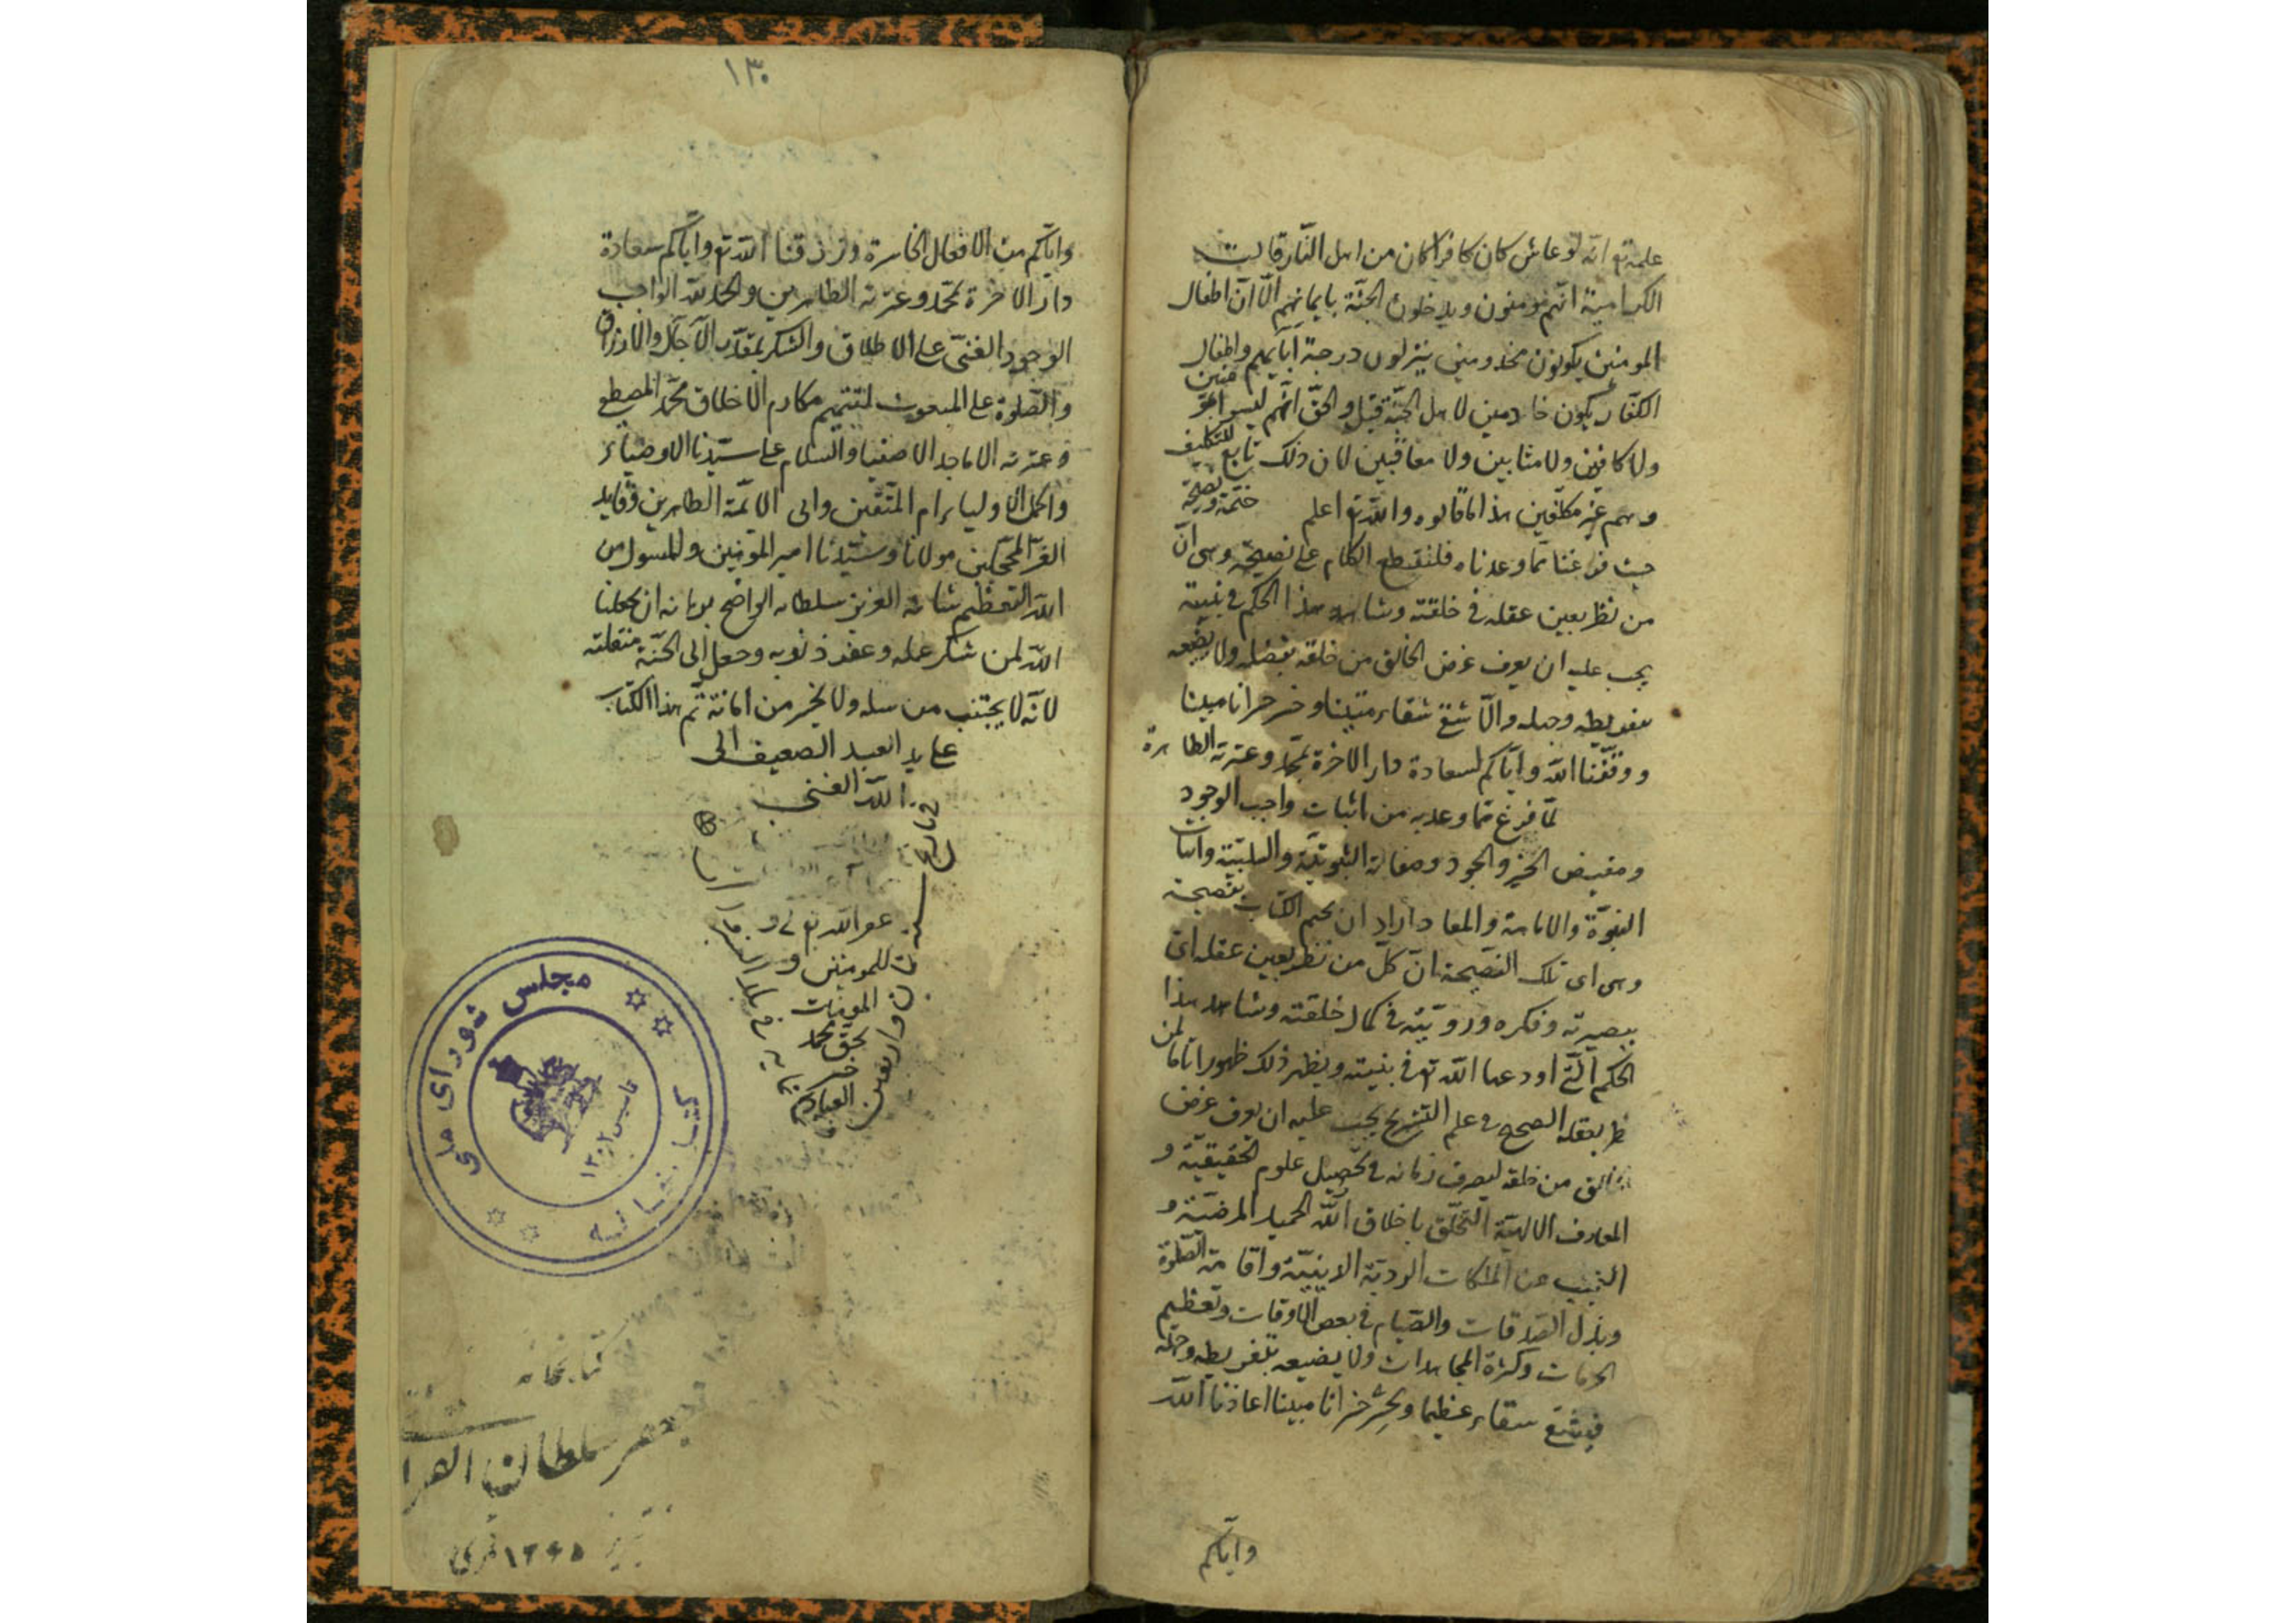 علمه تع انه لو عاش كان كافرا كان من اهل النّار قالت
الكرامية انهم مومنون ويدخلون الجنّة بايمانهم الّا انّ اطفال
المومنين يكونون مخدومين ينزلون درجة آبايهم واطفال
الكفّار يكون خادمين لاهل الجنّة قيل والحقّ انّهم ليسوا بمومنين
ولا كافرين ولا مثابين ولا معاقبين لان ذلك تابع للتكليف
وهم غير مكلّفين هذا ما قالوه والله تع اعلم ختمة ونصيحة
حيث فرغنا ممّا وعدناه فلنقطع الكلام على نصيحة وهى انّ
من نظر بعين عقله فى خلقته وشاهد هذا الحكم فى بنيته
يجب عليه ان يعرف غرض الخالق من خلقه بفضله ولا يضيعه
بتفريطه وجهله والّا شقى شقاء مبينا وخسر خسرانا مبينا
ووفّقنا الله وايّاكم لسعادة دار الاخرة بمحمّد وعترته الطاهرة
لمّا فرغ ممّا وعد به من اثبات واجب الوجود
ومفيض الخير والجود وصفاته الثبوتيّة والسلبيّة واثبات
النبوّة والامامة والمعاد اراد ان يختم الكتاب بنصيحة
وهى اى تلك النصيحة انّ كلّ من نظر بعين عقله اى
ببصيرته وفكره ورويّته فى كمال خلقته وشاهد هذا
الحكم الّتى اودعها الله تع فى بنيته ويظهر ذلك ظهورا تاما لمن
نظر بعقله الصحيح فى علم التشريح يجب عليه ان يعرف غرض
الخالق من خلقه ليصرف زمانه فى تحصيل علوم الحقيقيّة و
المعارف الالهيّة التخلّق باخلاق الله الحميد المرضيّة و
التجنب عن الملكات الرديّة الدنيّة واقامة الصّلوة
وبذل الصّدقات والصّيام فى بعض الاوقات وتعظيم
الحرمات وكثرة المجاهدات ولا يضيعه بتفريطه وجهله
فيشقى شقاء عظيما ويخسر خسرانا مبينا اعاذنا الله
وايّاكم
١٣٠
وايّاكم من الافعال الخاسرة ورزقنا الله تع وايّاكم سعادة
دار الاخرة بمحمّد وعترته الطاهرين والحمد لله الواجب
الوجود الغنىّ على الاطلاق والشكر لمقدّر الآجال والارزاق
والصّلوة على المبعوث لتتميم مكارم الاخلاق محمّد المصطفى
وعترته الاماجد الاصفياء والسلام على سيّدنا الاوصياء
واكمل الاولياء امام المتّقين وابى الائمّة الطاهرين وقايد
الغرّ المحجّلين مولانا وسيّدنا امير المؤمنين والمسول من
الله العظيم شانه العزيز سلطانه الواضح برهانه ان يجعلنا
الله لمن شكر عمله وغفر ذنوبه وجعل الى الجنّة منقلبه
لانّه لا يجتنب من سله ولا يخير من امانة تمّ هذا الكتاب
على يد العبد الضعيف الى
الله الغنى
فى تاريخ
سنه
واربعين
غفر الله تع له و
للمومنين و
المومنات
بحقّ محمّد
خير
العباد
مجلس شورای ملی
کتابخانه
تاسیس ١٣٠٢
کتابخانه
سلطان القرا
تبریز ١٣٤٥ قمری